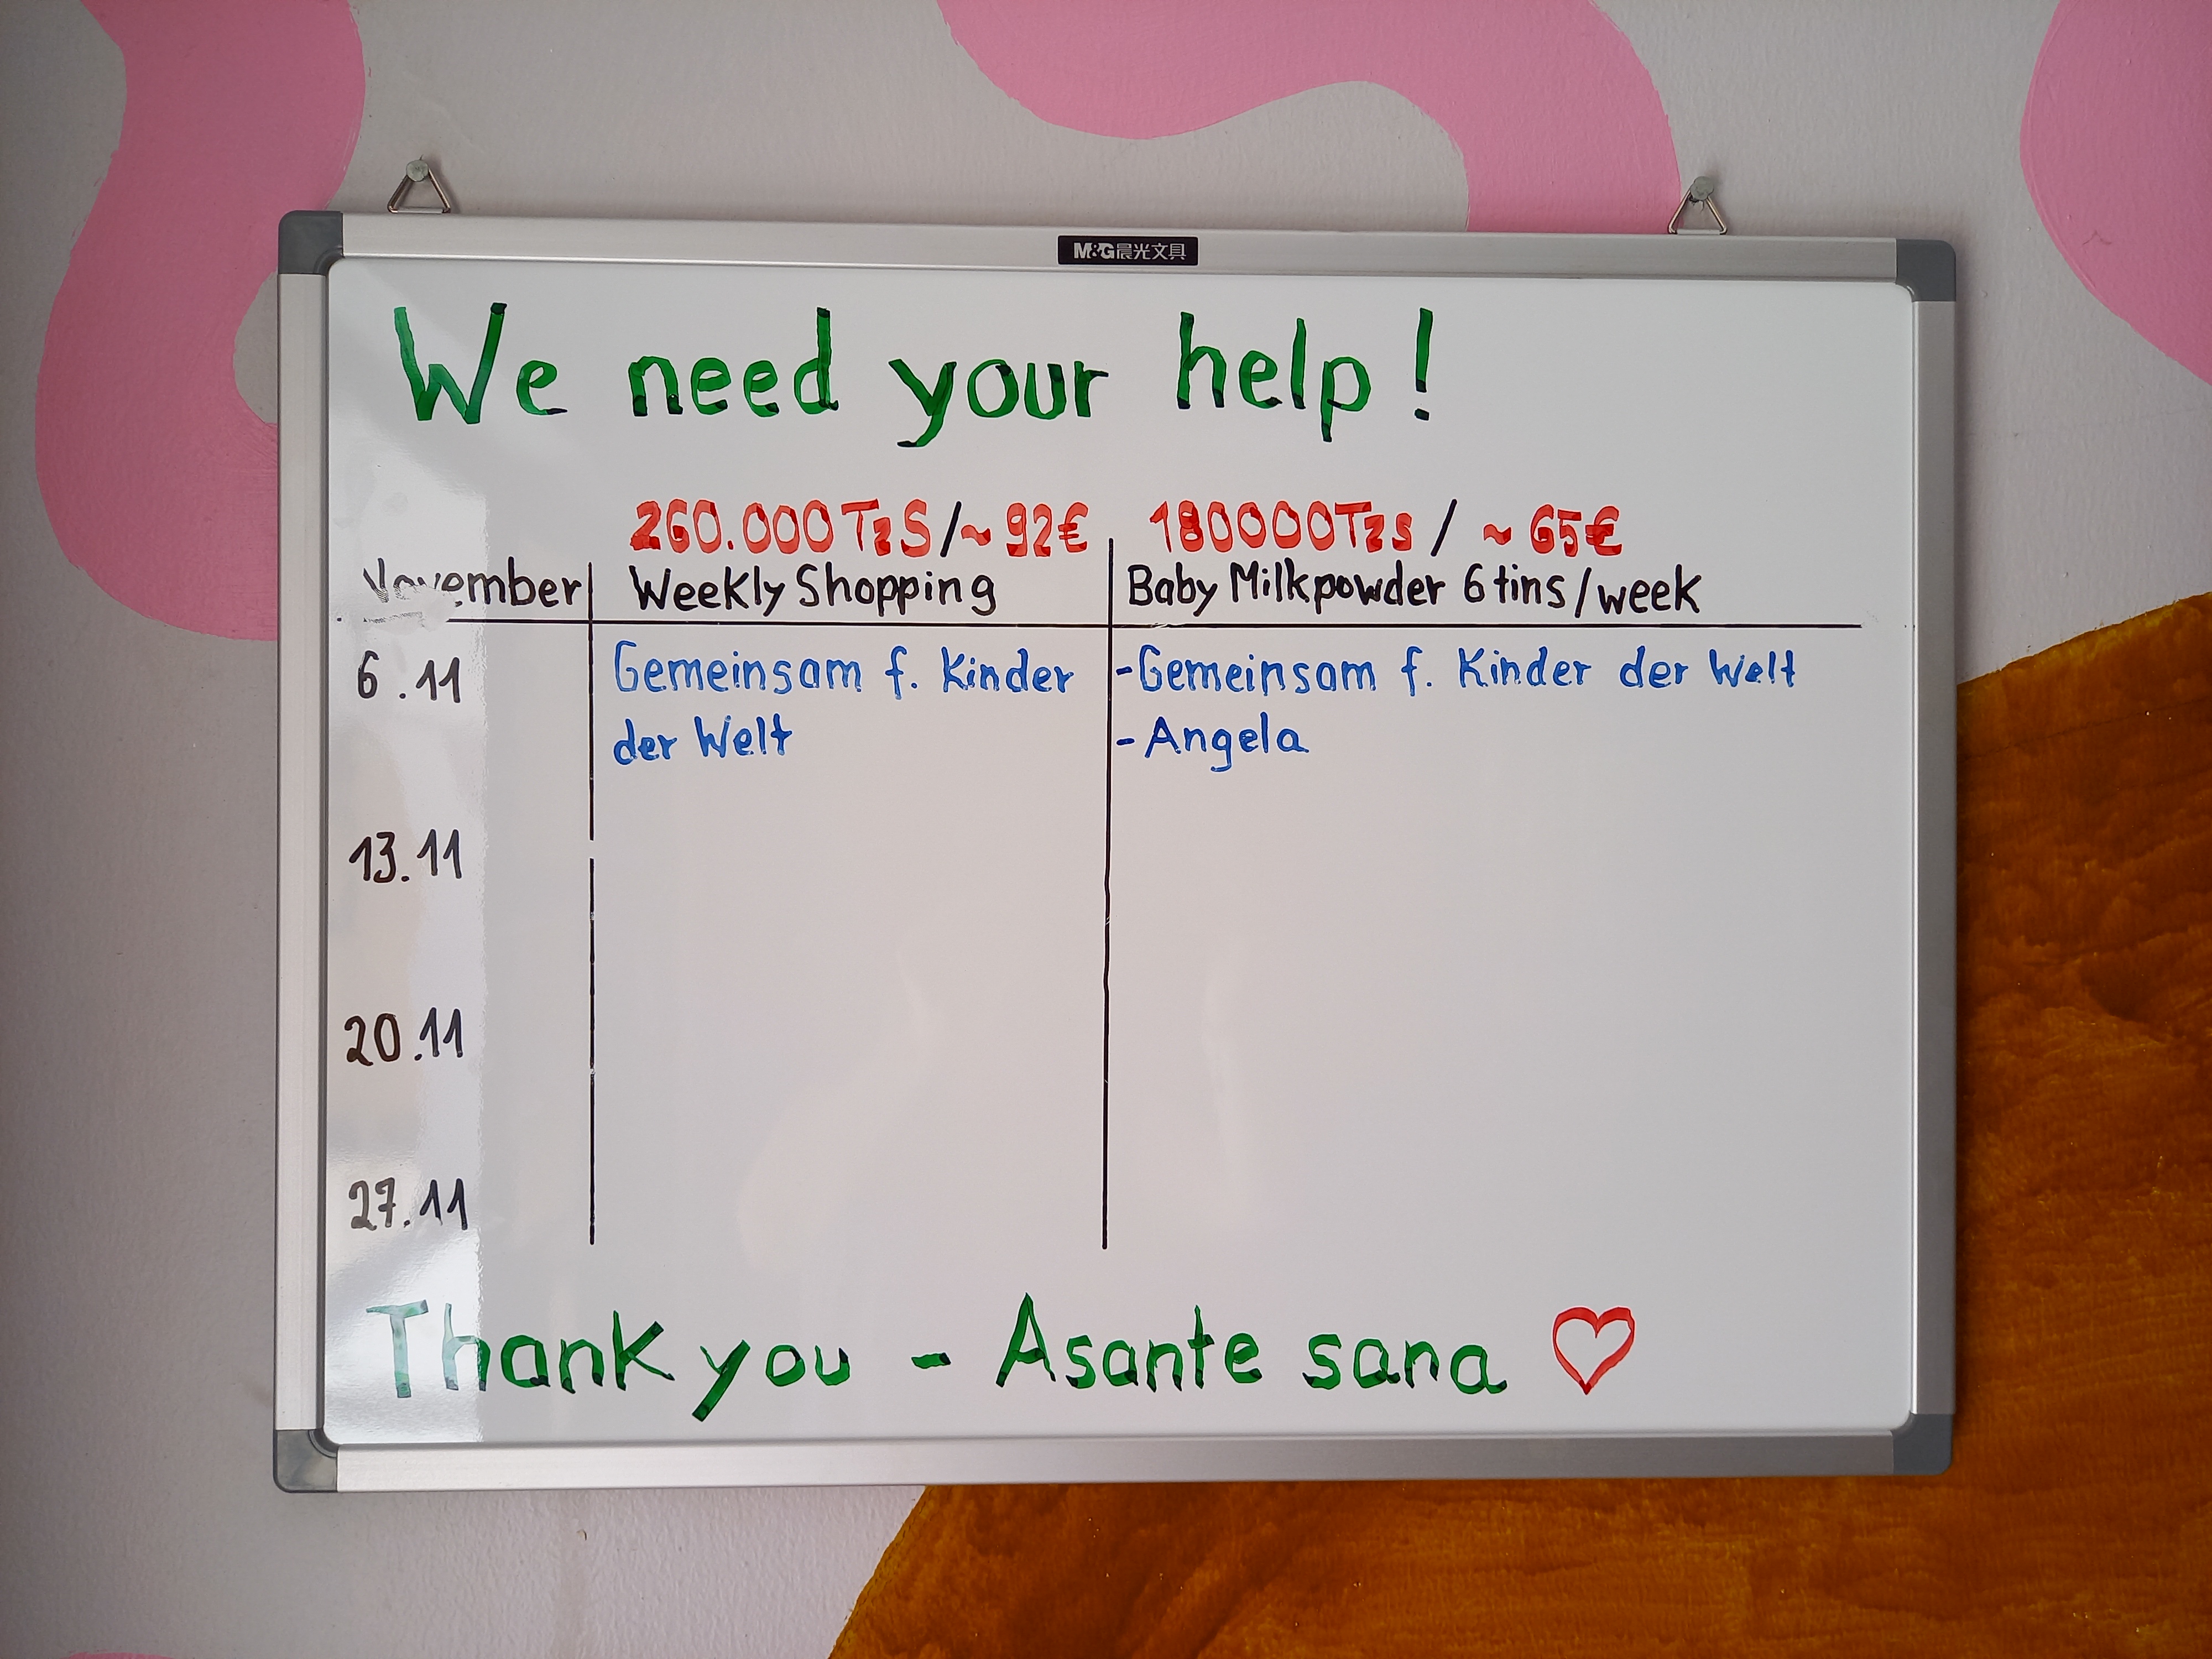 M&G晨光文具
We need your help!
260.000 TzS/~92€ 180000Tzs / ~65€
November Weekly Shopping Baby Milkpowder 6 tins/week
6.11 Gemeinsam f. Kinder -Gemeinsam f. Kinder der Welt
der Welt -Angela
13.11
20.11
27.11
Thank you - Asante sana